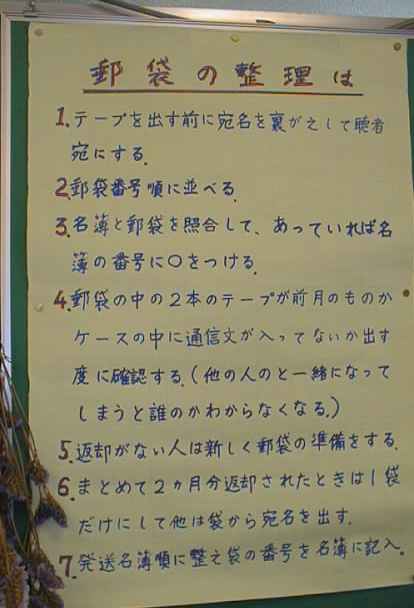 郵袋の整理は
1.テープを出す前に宛名を裏がえして聴者
宛にする.
2.郵袋番号順に並べる.
3.名簿と郵袋を照合して、あっていれば名
簿の番号に〇をつける.
4.郵袋の中の2本のテープが前月のものか
ケースの中に通信文が入ってないか出す
度に確認する.(他の人のと一緒になって
しまうと誰のかわからなくなる.)
5.返却がない人は新しく郵袋の準備をする.
6.まとめて2ヵ月分返却されたときは1袋
だけにして他は袋から宛名を出す.
7.発送名簿順に整え袋の番号を名簿に記入.